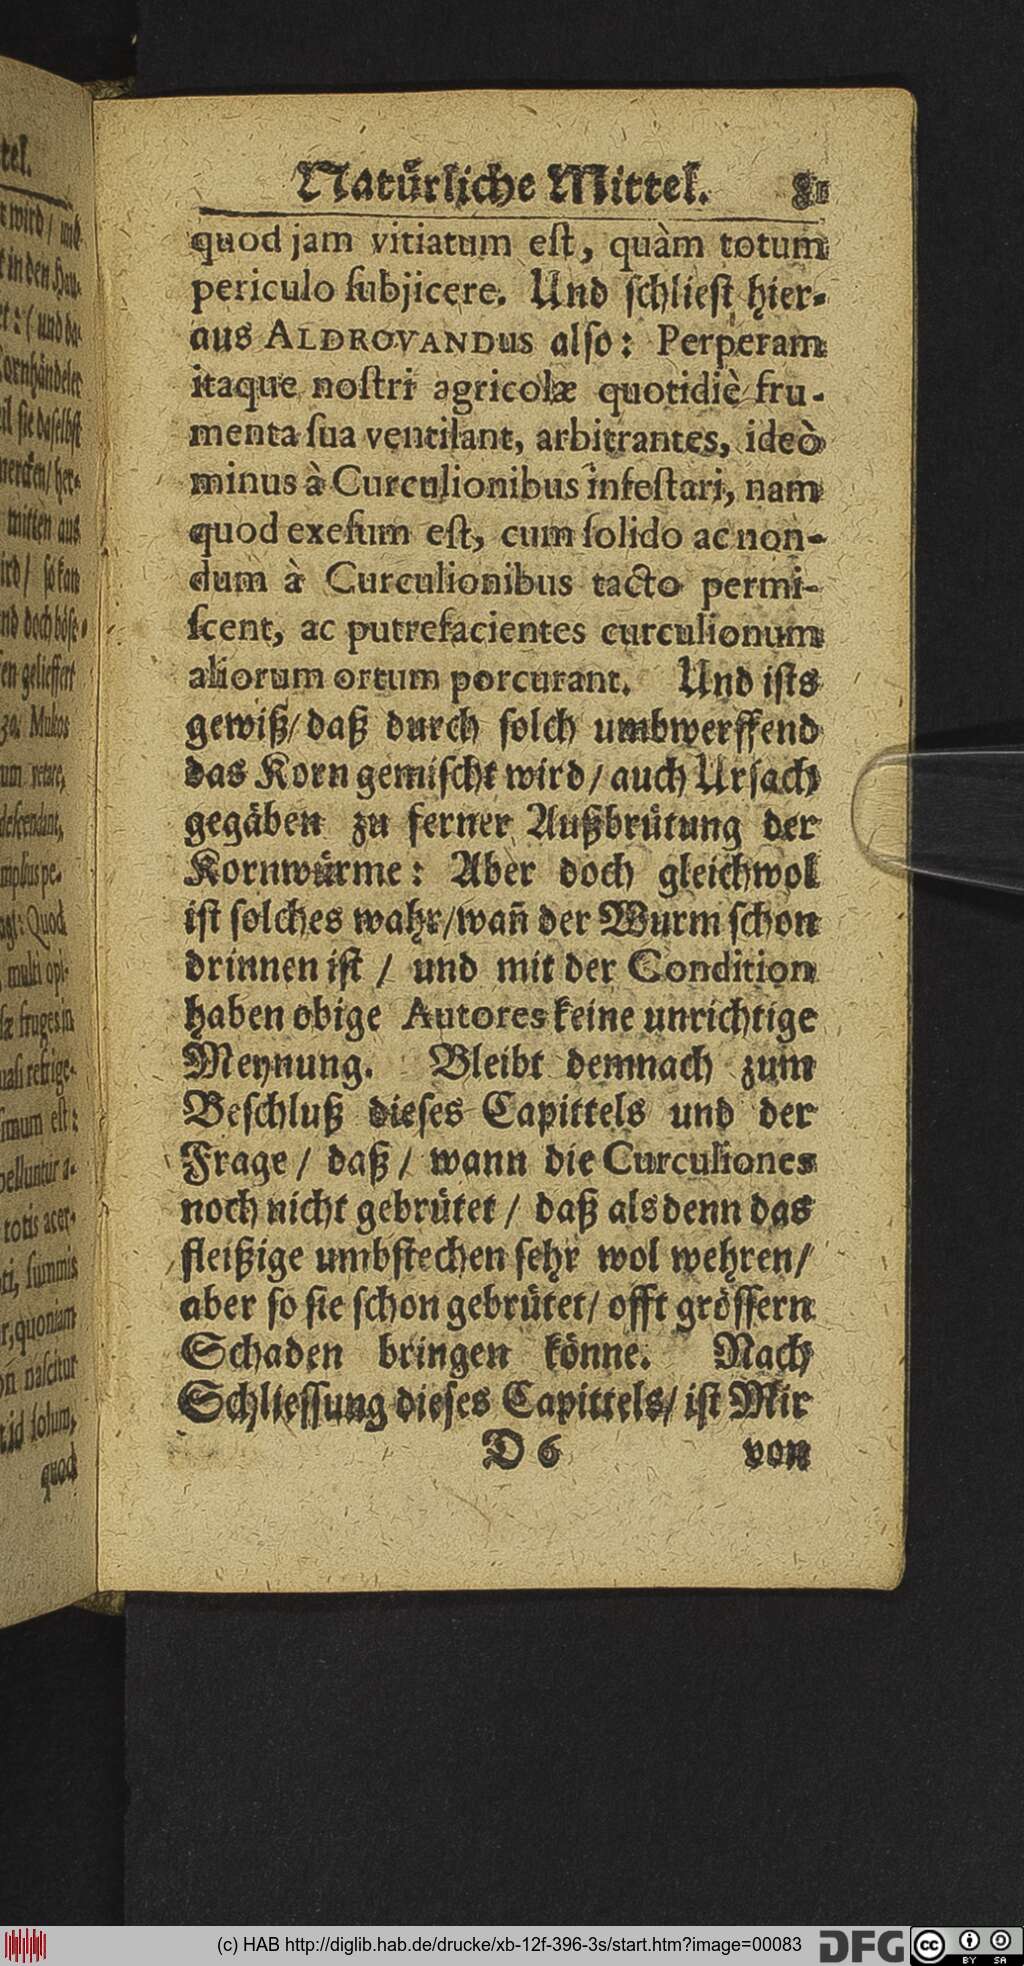 Natürliche Mittel. 81
quod jam vitiatum eſt, quàm totum
periculo ſubjicere. Und ſchlieſt hier-
aus ALDROVANDUS alſo: Perperam
itaque noſtri agricolæ quotidiè fru-
menta ſua ventilant, arbitrantes, ideò
minus à Curculionibus infeſtari, nam
quod exeſum eſt, cum ſolido ac non-
dum à Curculionibus tacto permi-
ſcent, ac putrefacientes curculionum
aliorum ortum porcurant. Und iſts
gewiß/ daß durch ſolch umbwerffend
das Korn gemiſcht wird/ auch Urſach
gegäben zu ferner Außbrütung der
Kornwürme: Aber doch gleichwol
iſt ſolches wahr/wañ der Wurm ſchon
drinnen iſt / und mit der Condition
haben obige Autores keine unrichtige
Meynung. Bleibt demnach zum
Beſchluß dieſes Capittels und der
Frage / daß / wann die Curculiones
noch nicht gebrütet / daß als denn das
fleißige umbſtechen ſehr wol wehren/
aber ſo ſie ſchon gebrütet/ offt gröſſern
Schaden bringen könne. Nach
Schlieſſung dieſes Capittels/ iſt Mir
D 6 von
tel.
t wird / und
t in den Hau-
et: ( und da-
Kornhändeler
il ſie daſelbſt
mercken/ her-
mitten aus
ird / ſo kan
nd doch böſe
en gelieffert
30. Mukos
um vetare,
deſcendant,
agi: Quod
, multi opi-
ſæ fruges in
uaſi refrige-
imum eſt:
pelluntur a-
totis acer-
ti, ſummis
r, quoniam
on naſcitur
t id ſolum,
quod
(c) HAB http://diglib.hab.de/drucke/xb-12f-396-3s/start.htm?image=00083 DFG cc BY SA